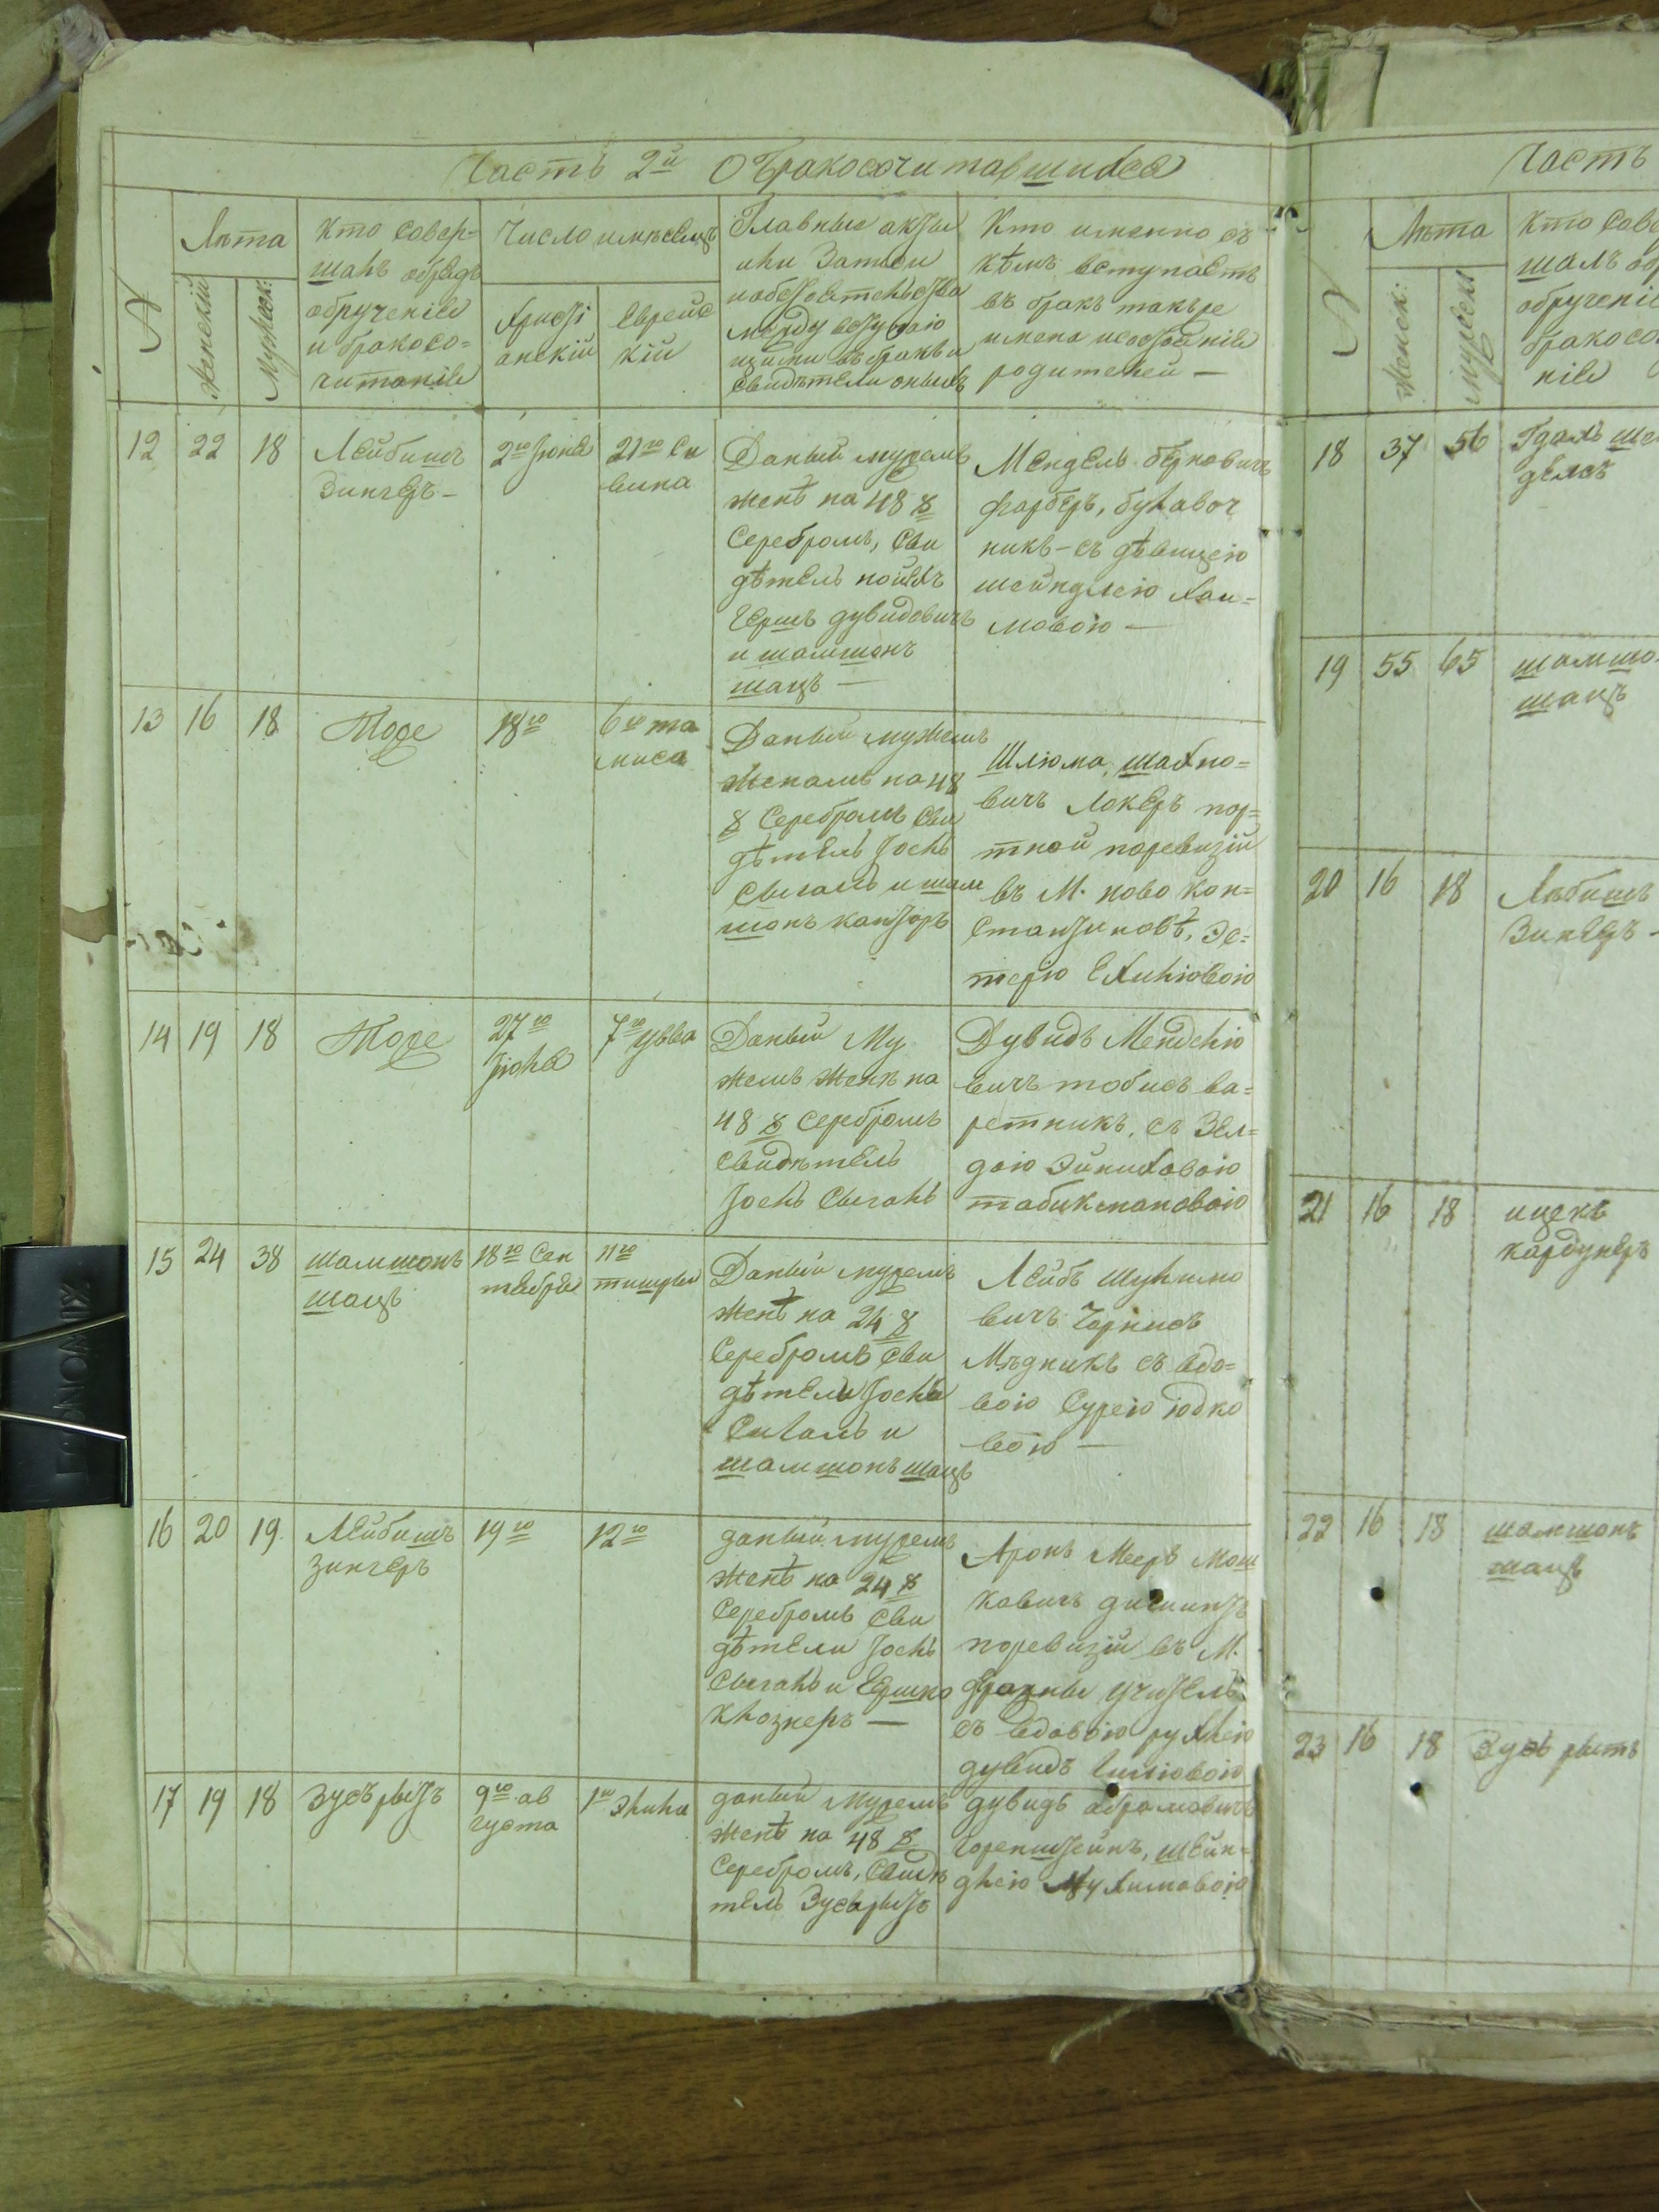 Часть 2й О бракосочитавшихся
№
Лѣта
женскій
Мужеск:
Кто совер=
шалъ обрядъ
обрученія
и бракосо=
читанія
Число и мѣсяцъ
Христі
анскій
Еврейс
кій
Главные акты
или Записи
и обезоятельства
между вступаю
щими въ бракъ и
свидѣтели оныхъ
Кто именно съ
кѣмъ вступаетъ
въ бракъ такъже
имена и состояніе
родителей —
12 22 18
Лейбишъ
Зингеръ —
2го Іюня
21го Си
вина
Даный мужемъ
женѣ на 48 
серебромъ, сви
дѣтель
Гершъ дувидовичъ
и шамшонъ
шацъ —
Мендель берковичъ
фарберъ, булавоч
никъ — съ дѣвицею
шейндлею Хаи=
мовою —
13 16 18
Тоже
18го
6го та
миса
Даный мужемъ
женамъ на 48
серебромъ сви
дѣтель Іось
Сыгалъ и шам
шонъ канторъ
Шлюма шахно=
вичъ Локеръ пор=
тной поревизіи
въ М. ново кон=
стантиновѣ, Эс=
терю Ехилювою
14 19 18
Тоже
27го
Іюля
7го
Даный му
жемъ женѣ на
48 серебромъ
свидѣтель
Іось Сыгалъ
Дувидъ Менделю
вичъ тобисъ ва=
ретникъ, съ Зел=
дою Эйниховою
15 24 38
шамшонъ
шацъ
18го Сен
тября
11го
тишры
Даный мужемъ
женѣ на 24
серебромъ сви
дѣтели Іось
Сигалъ и
шамшонъ шацъ
Лейбъ Шулимо
вичъ Чорнисъ
Мѣдникъ съ вдо=
вою Сурею юдко
вою —
16 20 19
Лейбишъ
зингеръ
19го
12го
даный мужемъ
женѣ на 24
серебромъ сви
дѣтели Іось
Сыгалъ и Ершко
Клознеръ —
Аронъ Мееръ Мош
ковичъ
поревизіи въ М.
учитель
съ вдовою рухлею
дувидъ
17 19 18
Зусъ рытъ
9го ав
густа
1го Элила
даный мужемъ
женѣ на 48
серебромъ, свидѣ
тель Зусь рытъ
дувидъ абрамовичъ
Горенштейнъ, шейн=
длею Нухимовою
Часть
№
Лѣта
женск:
мужеск
Кто сове
шалъ об
обрученіе
бракосо
ніе
18 37 56
Гдалъ ше
делсъ
19 55 65
шамшо
шацъ
20 16 18
Лѣбишъ
Зингеръ —
21 16 18
ицекъ
кордунеръ
22 16 18
шамшонъ
шацъ
23 16 18
Зусь рытъ